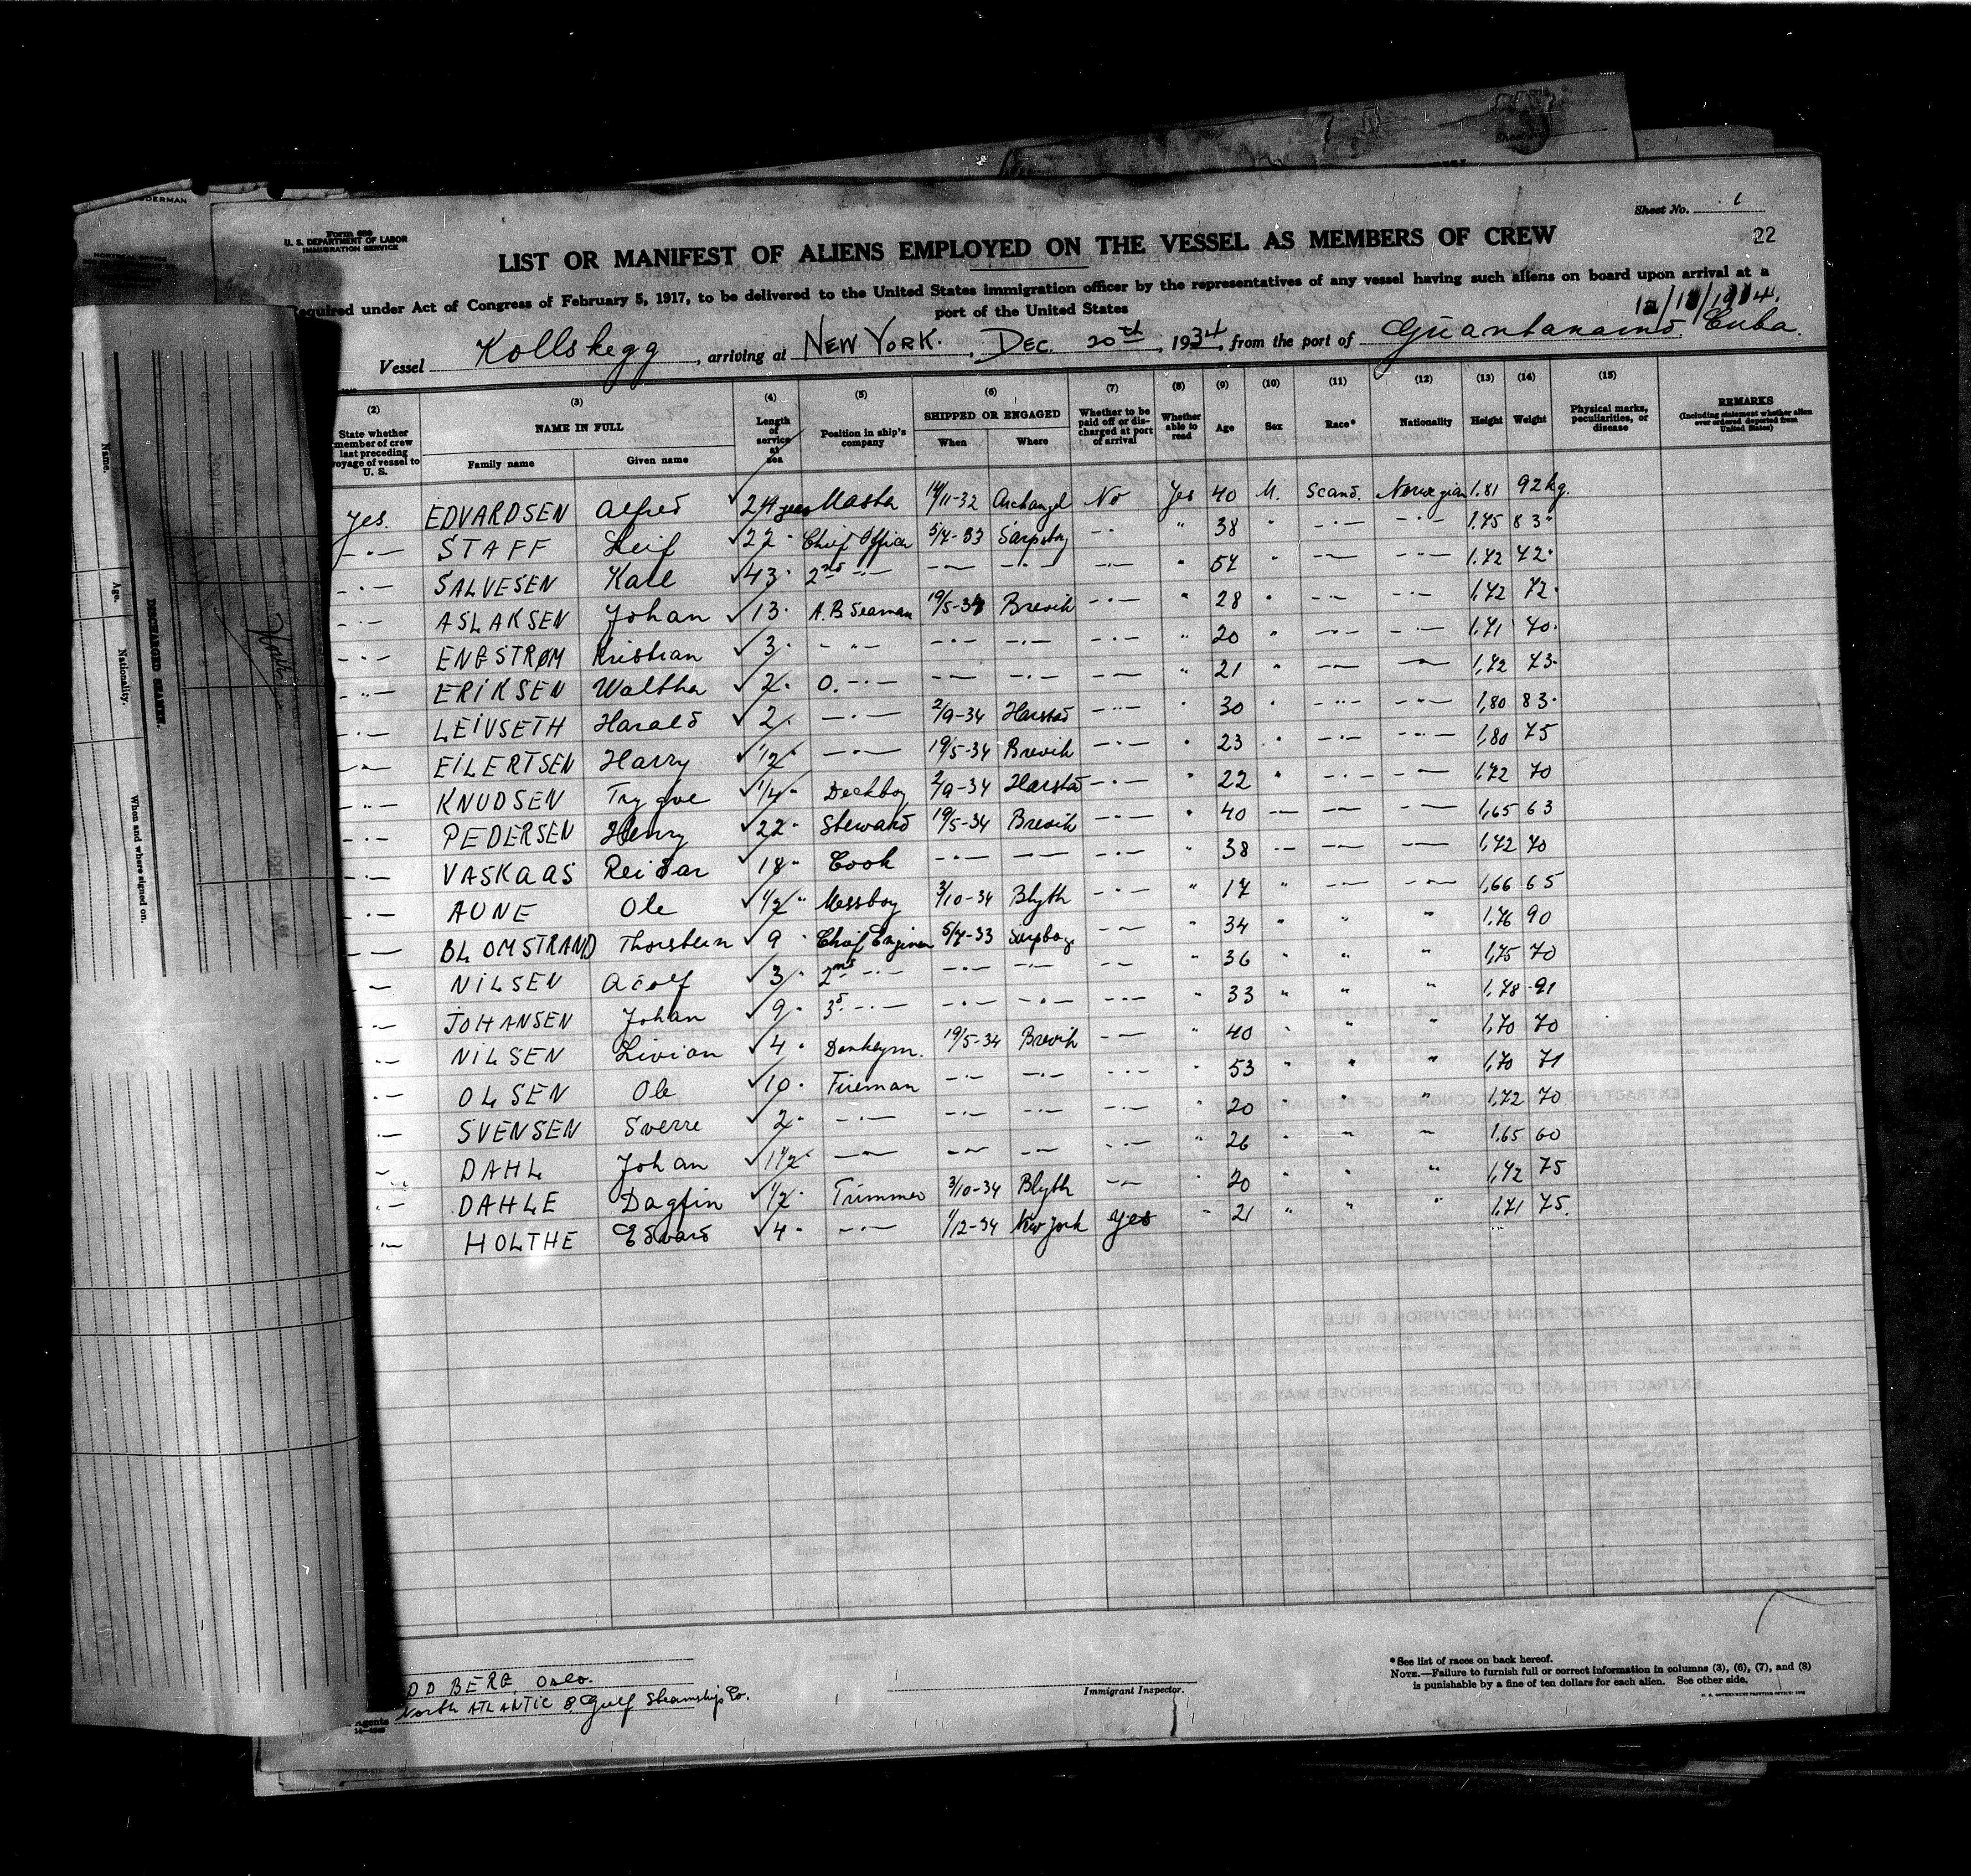 Sheet No. 1
Form 680
U. S. DEPARTMENT OF LABOR
IMMIGRATION SERVICE
22
LIST OR MANIFEST OF ALIENS EMPLOYED ON THE VESSEL AS MEMBERS OF CREW
Required under Act of Congress of February 5, 1917, to be delivered to the United States immigration officer by the representatives of any vessel having such aliens on board upon arrival at a
port of the United States
Vessel Kollskegg, arriving at NEW YORK. DEC. 20th, 1934, from the port of Guantanamo Cuba.
(2) (3) (4) (5) (6) (7) (8) (9) (10) (11) (12) (13) (14) (15)
State whether member of crew last preceding voyage of vessel to U. S. NAME IN FULL Family name Given name Length of service at sea Position in ship's company SHIPPED OR ENGAGED When Where Whether to be paid off or discharged at port of arrival Whether able to read Age Sex Race* Nationality Height Weight Physical marks, peculiarities, or disease REMARKS (Including statement whether alien ever ordered deported from United States)
Yes. EDVARDSEN Alfred 24 years Master 14/11-32 Archangel No Yes 40 M. Scand. Norwegian 1.81 92 kg.
-·- STAFF Leif 22 " Chief Officer 5/7-33 Sarpsborg -·- " 38 " -·- -·- 1.75 83 "
-·- SALVESEN Kare 43 " 2nd -·- -·- -·- -·- " 57 " -·- -·- 1.72 72 "
-·- ASLAKSEN Johan 13 " A.B Seaman 19/5-34 Brevik -·- " 28 " -·- -·- 1,72 72 "
-·- ENGSTRØM Kristian 3 " -·- -·- -·- -·- " 20 " -·- -·- 1.71 70 "
-·- ERIKSEN Walther 2 " O. -·- -·- -·- -·- " 21 " -·- -·- 1,72 73 "
-·- LEIVSETH Harald 2 " -·- 2/9-34 Harstad -·- " 30 " -·- -·- 1,80 83 "
-·- EILERTSEN Harry 1/2 " -·- 19/5-34 Brevik -·- " 23 " -·- -·- 1,80 75
-·- KNUDSEN Trygve 1/4 " Deckboy 2/9-34 Harstad -·- " 22 " -·- -·- 1,72 70
-·- PEDERSEN Henry 22 " Steward 19/5-34 Brevik -·- " 40 -·- -·- -·- 1,65 63
-·- VASKAAS Reidar 18 " Cook -·- -·- -·- " 38 -·- -·- -·- 1,72 70
-·- AUNE Ole 1/2 " Messboy 3/10-34 Blyth -·- " 17 " -·- -·- 1,66 65
-·- BLOMSTRAND Thorstein 9 " Chief Engineer 5/7-33 Sarpsborg -·- " 34 " " " 1.76 90
-·- NILSEN Adolf 3 " 2nd -·- -·- -·- -·- " 36 " " " 1,75 70
-·- JOHANSEN Johan 9 " 3d -·- -·- -·- -·- " 33 " " " 1,78 91
-·- NILSEN Livian 4 " Donkeym. 19/5-34 Brevik -·- " 40 " " " 1,70 70
-·- OLSEN Ole 10 " Fireman -·- -·- -·- " 53 " " " 1,70 71
-·- SVENSEN Sverre 2 " -·- -·- -·- -·- " 20 " " " 1,72 70
-·- DAHL Johan 1 1/2 " -·- -·- -·- -·- " 26 " " " 1.65 60
-·- DAHLE Dagfin 1/2 " Trimmer 3/10-34 Blyth -·- " 20 " " " 1,72 75
-·- HOLTHE Edvard 4 " -·- 1/12-34 New York yes " 21 " " " 1,71 75.
BERG, Oslo.
North ATLANTIC & Gulf Steamship Co.
Agents
Immigrant Inspector.
*See list of races on back hereof.
NOTE.—Failure to furnish full or correct information in columns (3), (6), (7), and (8)
is punishable by a fine of ten dollars for each alien. See other side.
Name.
Age.
Nationality.
DISCHARGED SEAMEN.
When and where signed on.